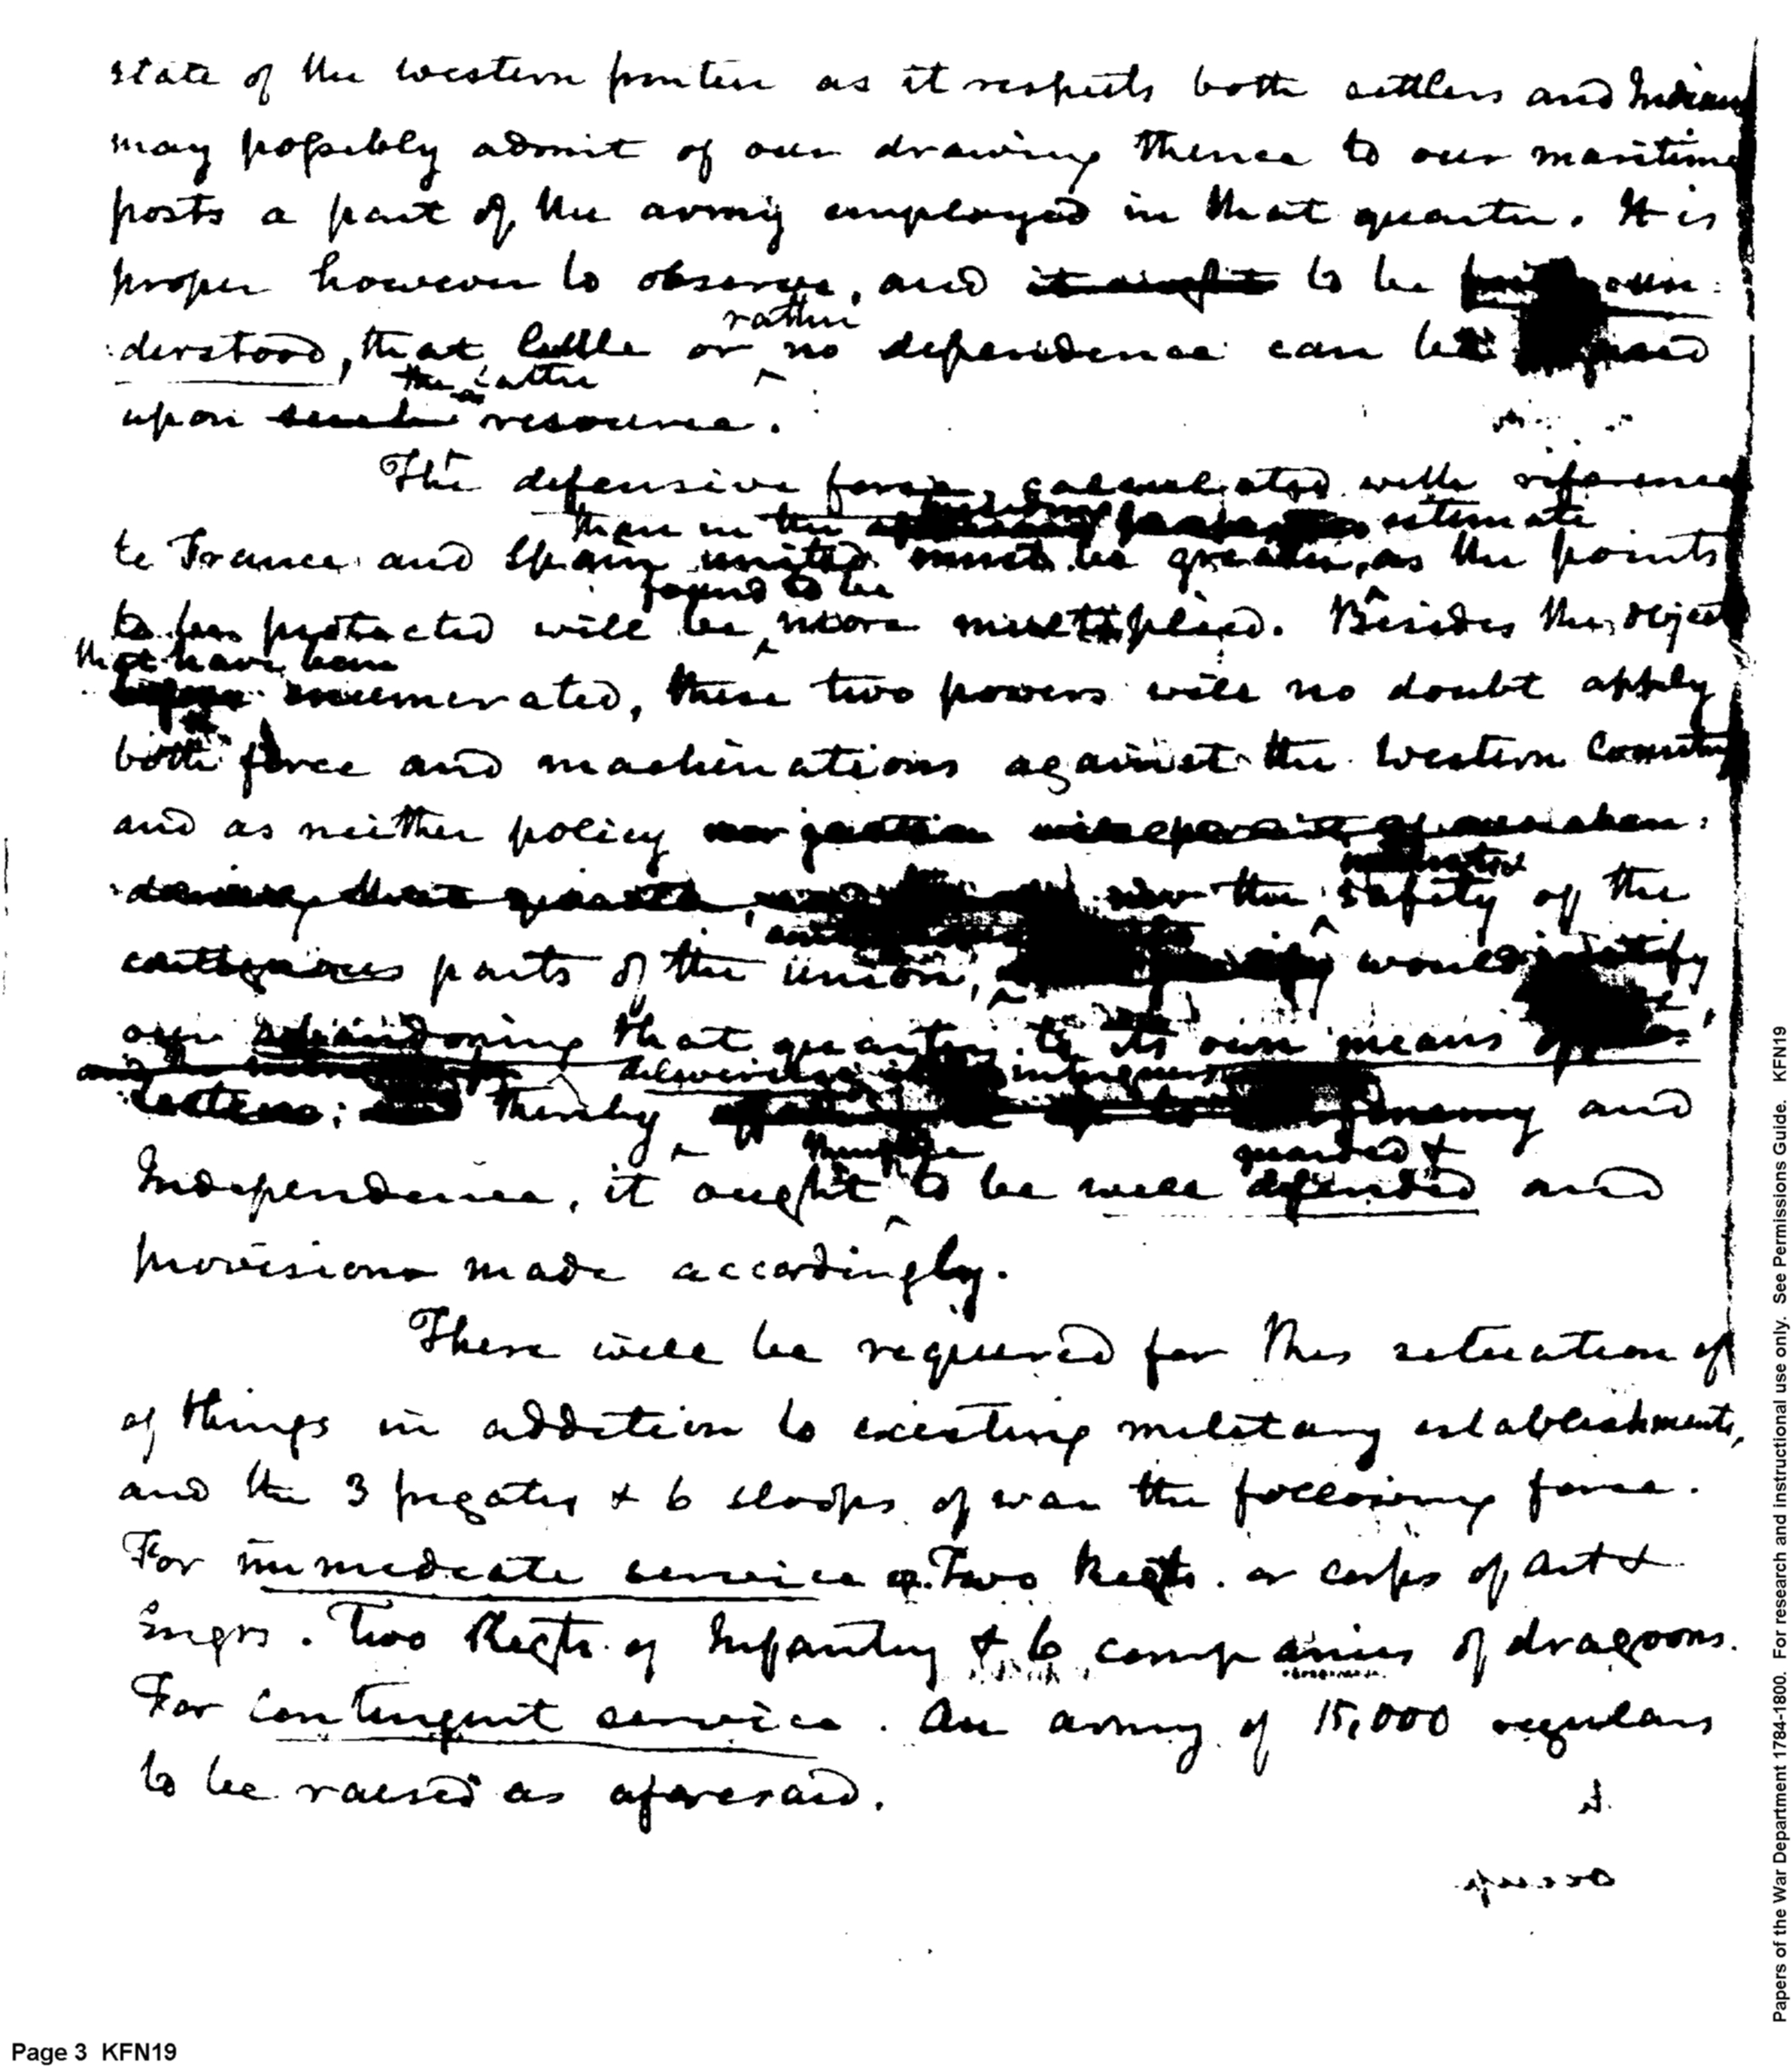 state of the western frontier as it respects both settlers and Indians
may possibly admit of our drawing thence to our maritime
posts a part of the army employed in that quarter. It is
proper however to observe, and it ought to be
rather
:derstood, that little or no dependence can be
the latter
upon such resource.
The defensive force, calculated with reference
than in the estimate
to France and Spain united must be greater, as the points
found to be
to be protected will be more multiplied. Besides the object
that have been
before enumerated, these two powers will no doubt apply
both force and machinations against the Western Country
and as neither policy nor justice will permit of our aban:
:doning that quarter, nor the safety of the
contiguous parts of the union, would justify
our abandoning that quarter to its own means of
thereby and
therefore guarded &
Independence, it ought to be well defended and
provisions made accordingly.
There will be required for this situation of
of things in addition to existing military establishments,
and the 3 frigates & 6 sloops of war the following force.
For immediate service Two Regts. or corps of Art &
Engrs. Two Regts. of Infantry & 6 companies of dragoons.
For contingent service. An army of 15,000 regulars
to be raised as aforesaid.
Page 3 KFN19
Papers of the War Department 1784-1800. For research and instructional use only. See Permissions Guide. KFN19